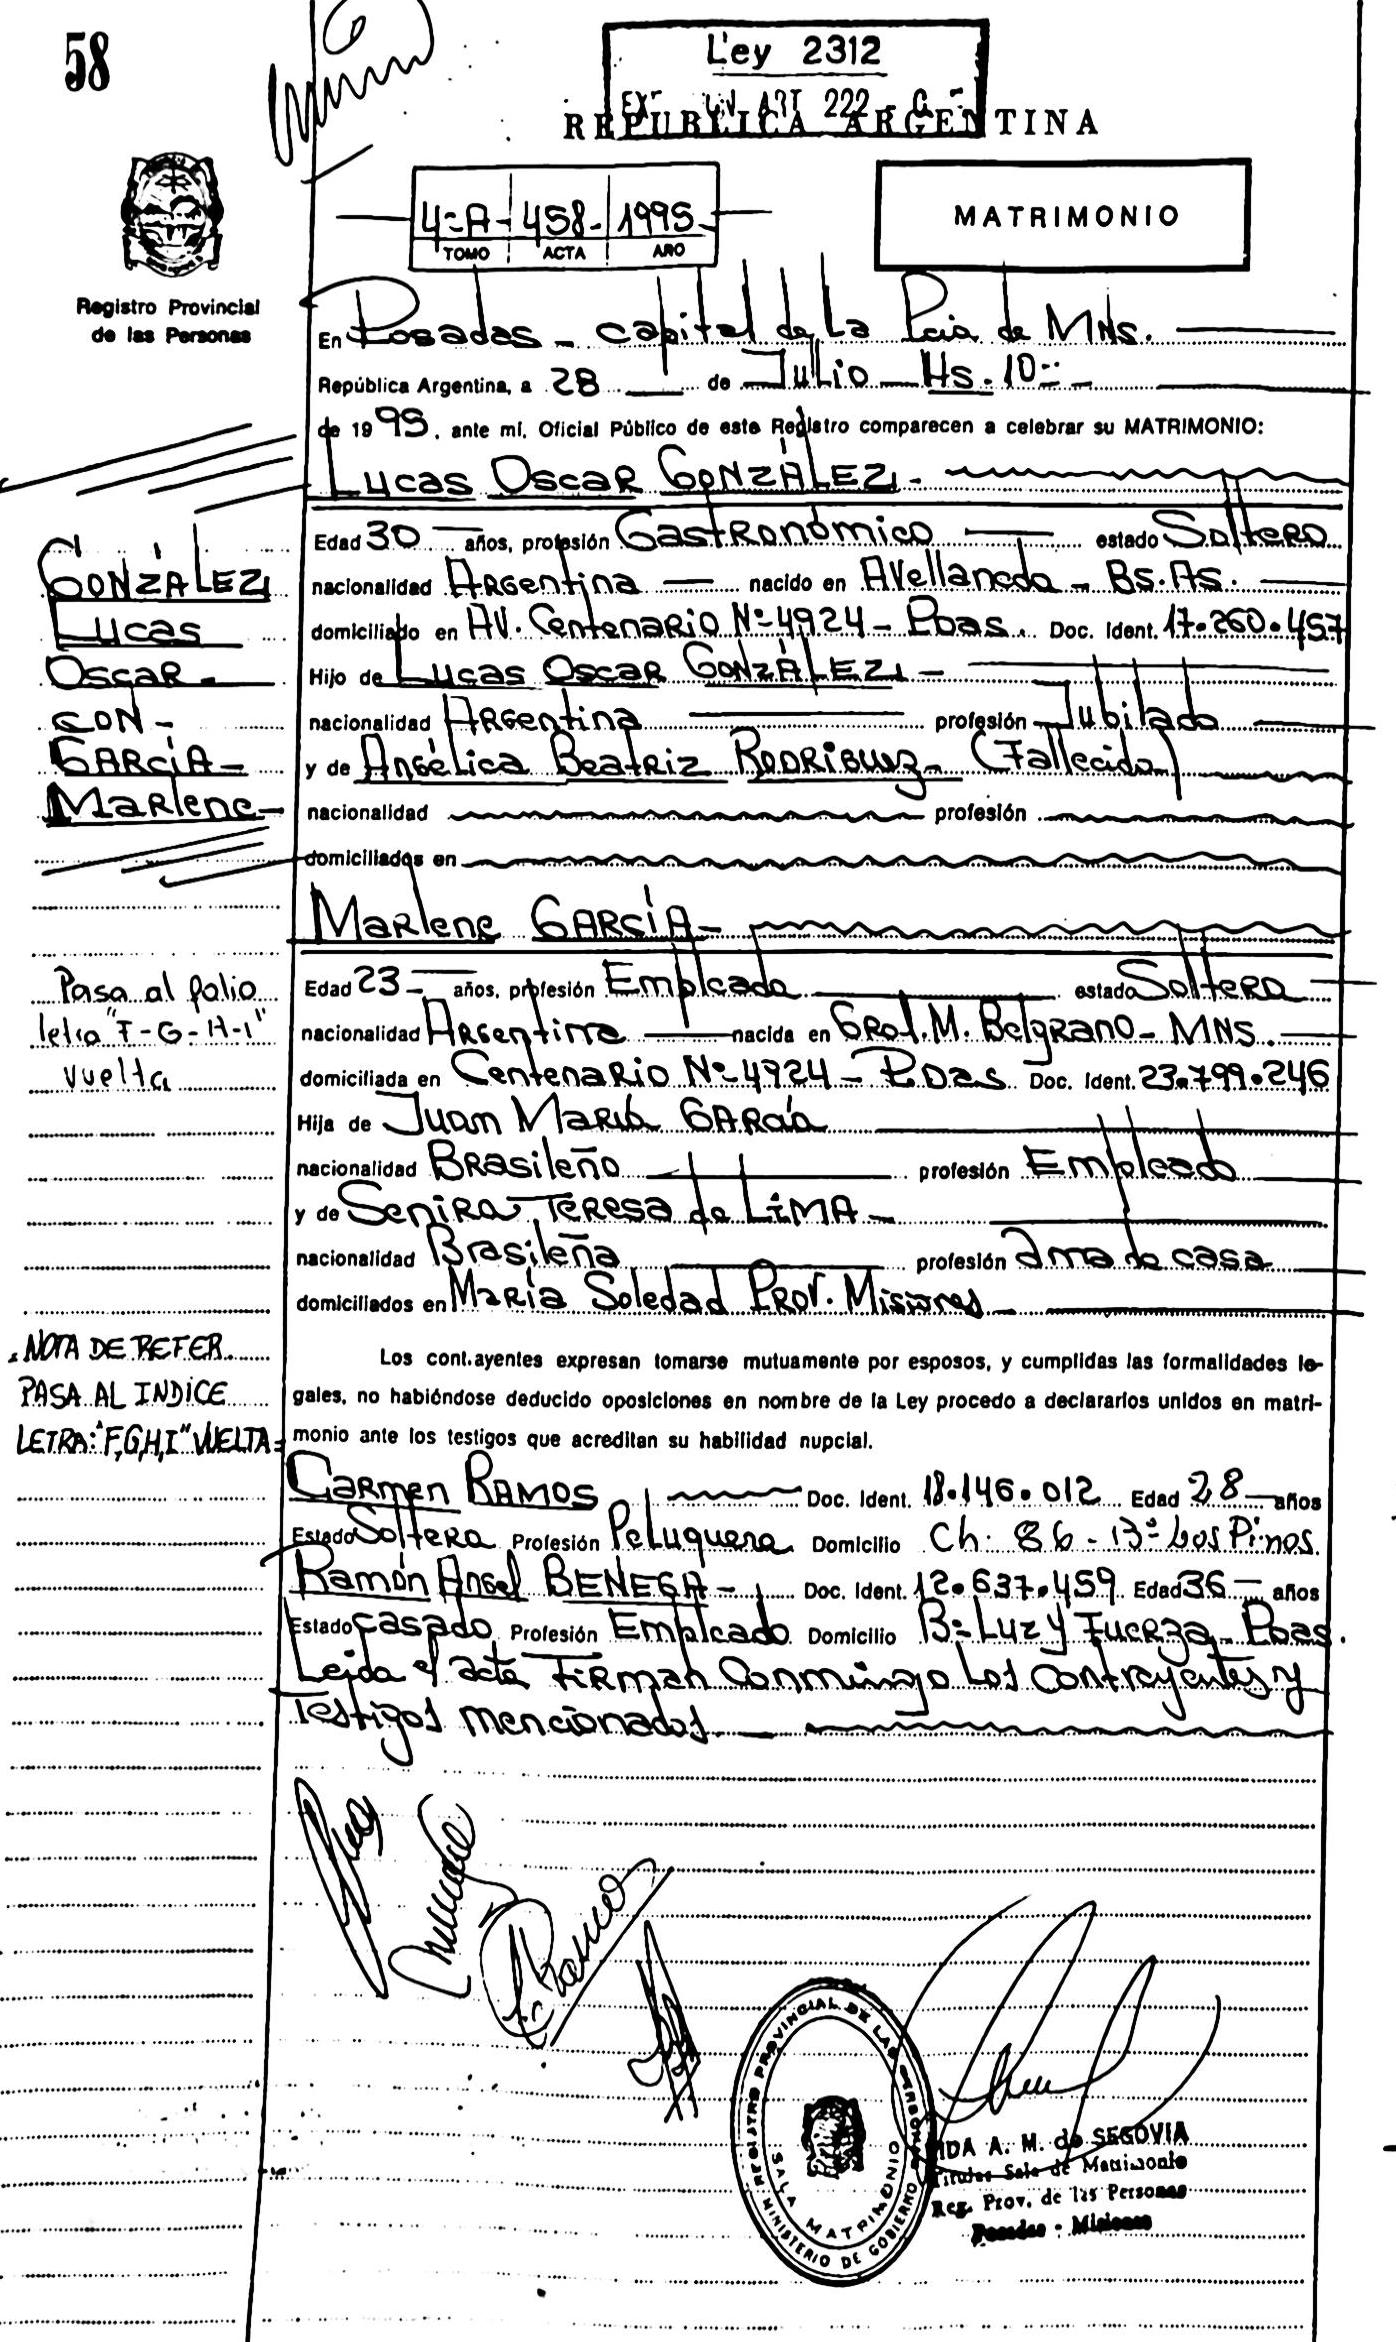 58
Ley 2312
ART 222
REPUBLICA ARGENTINA
4=A- 458- 1995-
TOMO ACTA AÑO
MATRIMONIO
Registro Provincial
de las Personas
En Posadas - capital de La Pcia de MNS.
República Argentina, a 28 de Julio Hs. 10
de 1995, ante mí, Oficial Público de este Registro comparecen a celebrar su MATRIMONIO:
Lucas Oscar GONZÁLEZ -
Edad 30 años, profesión Gastronómico estado Soltero
nacionalidad Argentina nacido en Avellaneda - Bs. As.
domiciliado en AV. Centenario Nº 4924 - Pdas. Doc. Ident. 17.260.457
Hijo de Lucas Oscar GONZÁLEZ -
nacionalidad Argentina profesión Jubilado
y de Angélica Beatriz RODRIGUEZ - (Fallecida)
nacionalidad profesión
domiciliados en
GONZÁLEZ
Lucas
Oscar -
CON -
GARCÍA -
Marlene -
Marlene GARCÍA -
Edad 23 - años, profesión Empleada estado Soltera
nacionalidad Argentina nacida en Gral. M. Belgrano - MNS.
domiciliada en Centenario Nº 4924 - Pdas Doc. Ident. 23.799.246
Hija de Juan María GARCÍA
nacionalidad Brasileño profesión Empleado
y de Senira Teresa de LIMA -
nacionalidad Brasileña profesión ama de casa
domiciliados en María Soledad Prov. Misiones -
Pasa al folio
letra "F-G-H-I"
vuelta
NOTA DE REFER.
PASA AL INDICE
LETRA: "F,G,H,I" VUELTA =
Los cont.ayentes expresan tomarse mutuamente por esposos, y cumplidas las formalidades le-
gales, no habiéndose deducido oposiciones en nombre de la Ley procedo a declararlos unidos en matri-
monio ante los testigos que acreditan su habilidad nupcial.
Carmen RAMOS Doc. Ident. 18.146.012 Edad 28 años
Estado Soltera Profesión Peluquera Domicilio Ch. 86 - Bº Los Pinos.
Ramón Angel BENEGA - Doc. Ident. 12.637.459 Edad 36 años
Estado casado Profesión Empleado Domicilio Bº Luz y Fuerza - Pdas.
Leída el acta Firman Conmingo Los Contrayentes y
Testigos mencionados
REGISTRO PROVINCIAL DE LAS PERSONAS
SALA MATRIMONIO
MINISTERIO DE GOBIERNO
IDA A. M. de SEGOVIA
Titular Sala de Matrimonio
Reg. Prov. de las Personas
Posadas - Misiones